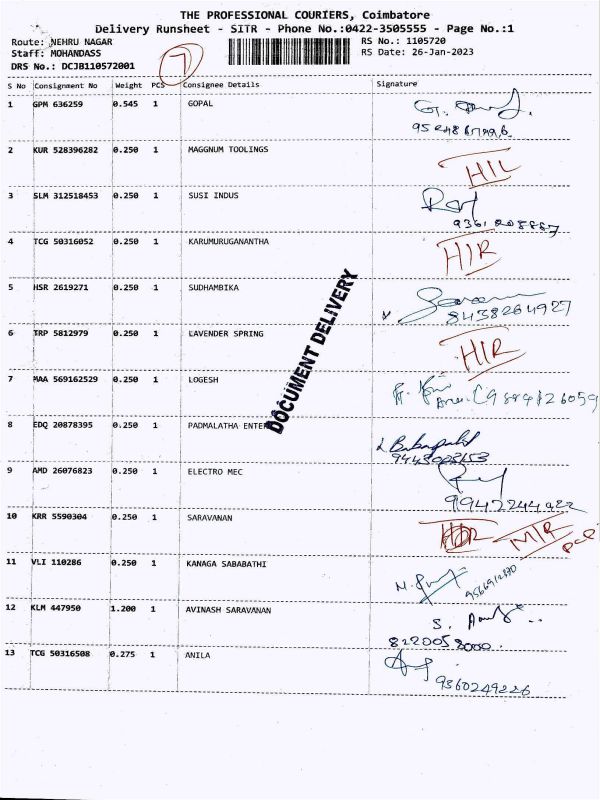 THE PROFESSIONAL COURIERS, Coimbatore
Delivery Runsheet - SITR - Phone No.:0422-3505555 - Page No.:1
Route: NEHRU NAGAR
Staff: MOHANDASS
DRS No.: DCJB110572001
7
RS No.: 1105720
RS Date: 26-Jan-2023
S No Consignment No Weight PCS Consignee Details Signature
1 GPM 636259 0.545 1 GOPAL
2 KUR 528396282 0.250 1 MAGGNUM TOOLINGS
HIL
3 SLM 312518453 0.250 1 SUSI INDUS
4 TCG 50316052 0.250 1 KARUMURUGANANTHA
HIR
5 HSR 2619271 0.250 1 SUDHAMBIKA
8438264927
6 TRP 5812979 0.250 1 LAVENDER SPRING
HIR
7 MAA 569162529 0.250 1 LOGESH
9884126059
DOCUMENT DELIVERY
8 EDQ 20878395 0.250 1 PADMALATHA ENTER
9 AMD 26076823 0.250 1 ELECTRO MEC
10 KRR 5590304 0.250 1 SARAVANAN
MIR
11 VLI 110286 0.250 1 KANAGA SABABATHI
12 KLM 447950 1.200 1 AVINASH SARAVANAN
8220058000
13 TCG 50316508 0.275 1 ANILA
9360249226